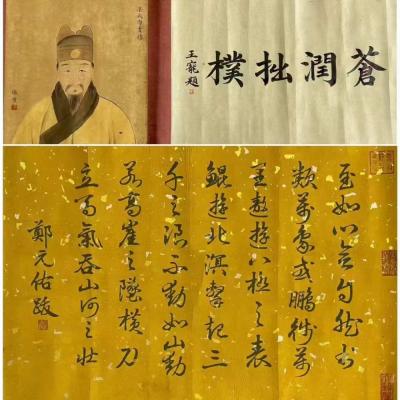 蒼潤拙樸
王寵題
至如
類萬象或鵬萬
里遨遊八極之表
鯤遊北溟擊起三
千之浪不動如山動
若高崖之墜橫刀
立馬氣吞山河之壯
鄭元佑跋